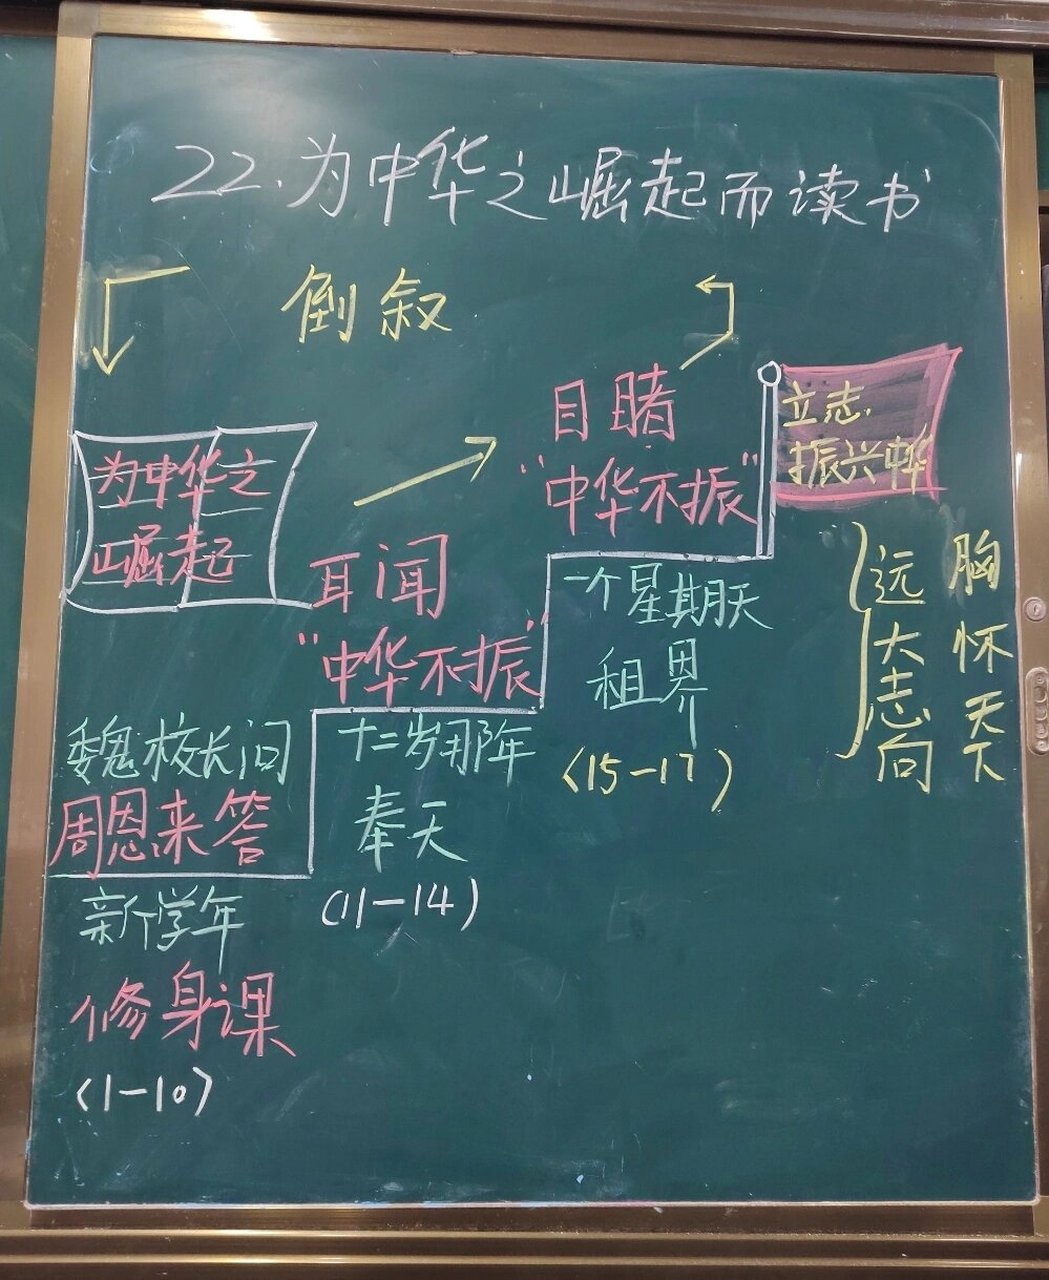 22.为中华之崛起而读书
倒叙
为中华之
崛起
魏校长问
周恩来答
新学年
修身课
(1-10)
耳闻
"中华不振"
十二岁那年
奉天
(11-14)
目睹
"中华不振"
一个星期天
租界
(15-17)
立志.
振兴中华
远大志向
胸怀天下